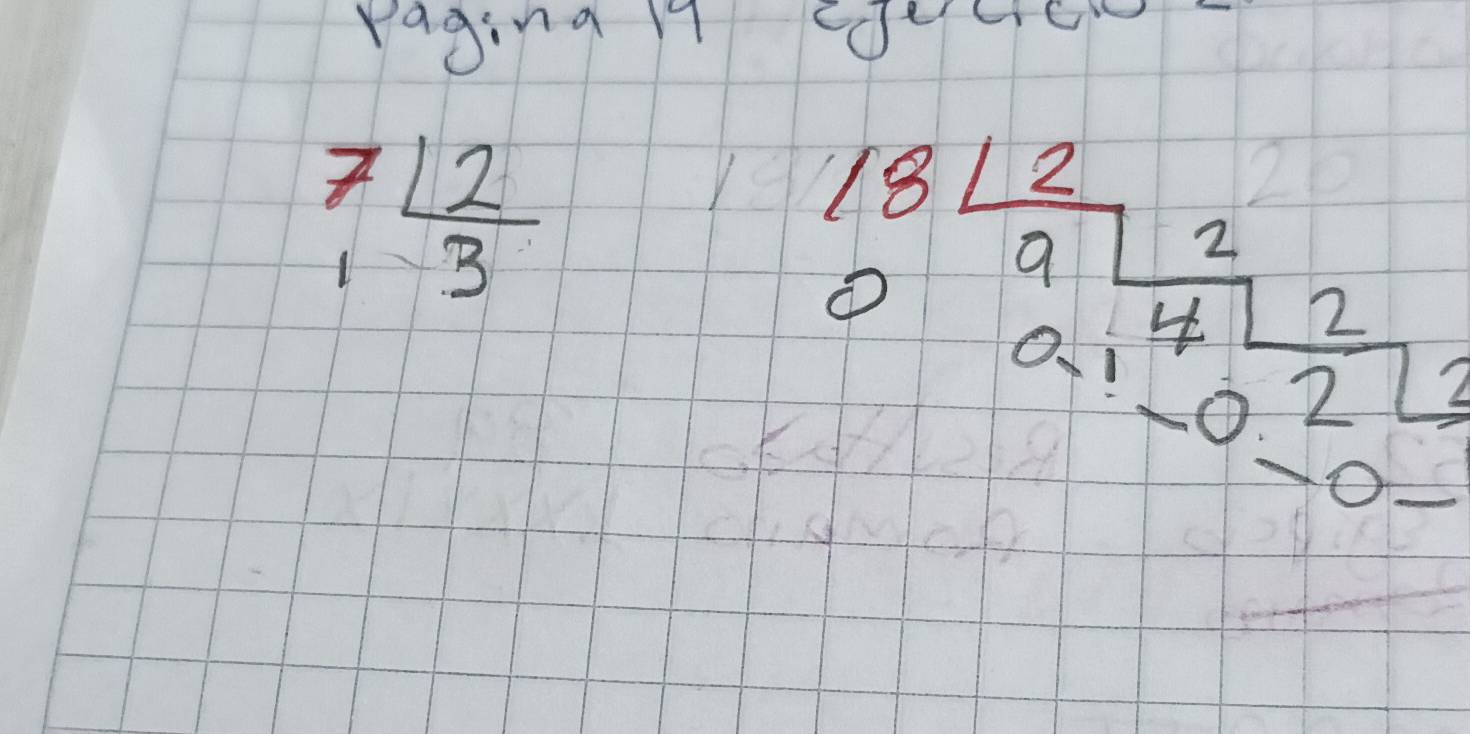 Pagina 19 Ejercicio 2
7 2 18 2
1 3 0 9 2
0 1 4 2
0 2 2
0